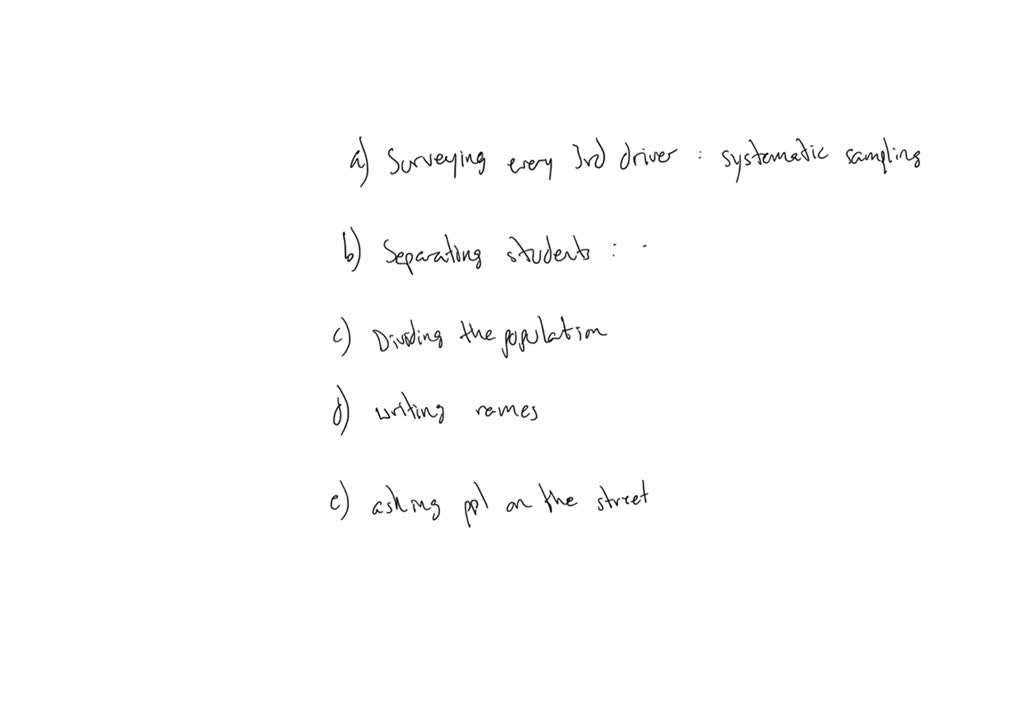 a) Surveying every 3rd driver : systematic sampling
b) Separating students : -
c) Dividing the population
d) writing names
e) asking ppl on the street